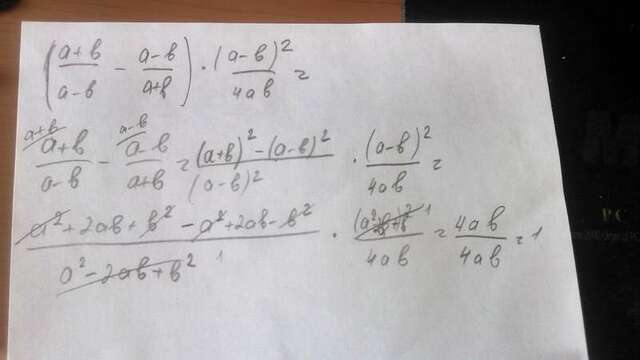 (a+b/a-b - a-b/a+b) · (a-b)²/4ab =
a+b a-b
a+b/a-b - a-b/a+b = (a+b)² - (a-b)²/(a-b)² · (a-b)²/4ab =
a² + 2ab + b² - a² + 2ab - b²/a² - 2ab + b² 1 · 1/4ab = 4ab/4ab = 1
PC